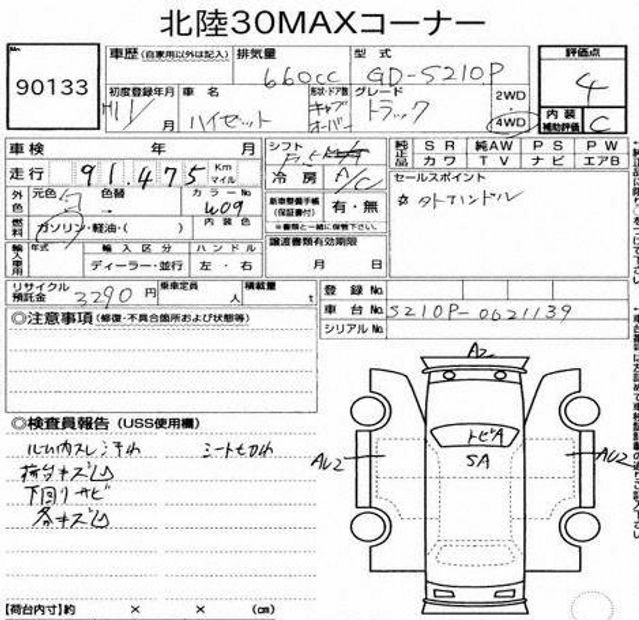 北陸30MAXコーナー
No. 90133
車歴 (自家用以外は記入) 排気量 660cc 型式 GD-S210P 評価点 4
初度登録年月 H11/ 月 車名 ハイゼット 形状・ドア数 キャブオーバー グレード トラック 2WD・4WD 内装補助評価 C
車検 年 月 シフト 純正品 SR 純AW PS PW
カワ TV ナビ エアB
走行 91,475 Km マイル 冷房 A/C
セールスポイント
☆タオハンドル
外色 元色 色替 カラーNo W09
新車整備手帳(保証書付) 有・無
※書類と一緒に保管下さい。
燃料 ガソリン・軽油・( ) 内装色
譲渡書類有効期限
月 日
輸入車用 年式 輸入区分 ハンドル
ディーラー・並行 左・右
リサイクル預託金 3290円 乗車定員 人 積載量 t
登録No.
車台No. S210P-0621139
シリアルNo.
◎注意事項 (修復・不具合箇所および状態等)
◎検査員報告 (USS使用欄)
ルーム内スレ汚れ シート切れ
荷台キズ凹
下回りサビ
各キズ凹
【荷台内寸】約 × × (cm)
A2
トビA
SA
AU2
AU2